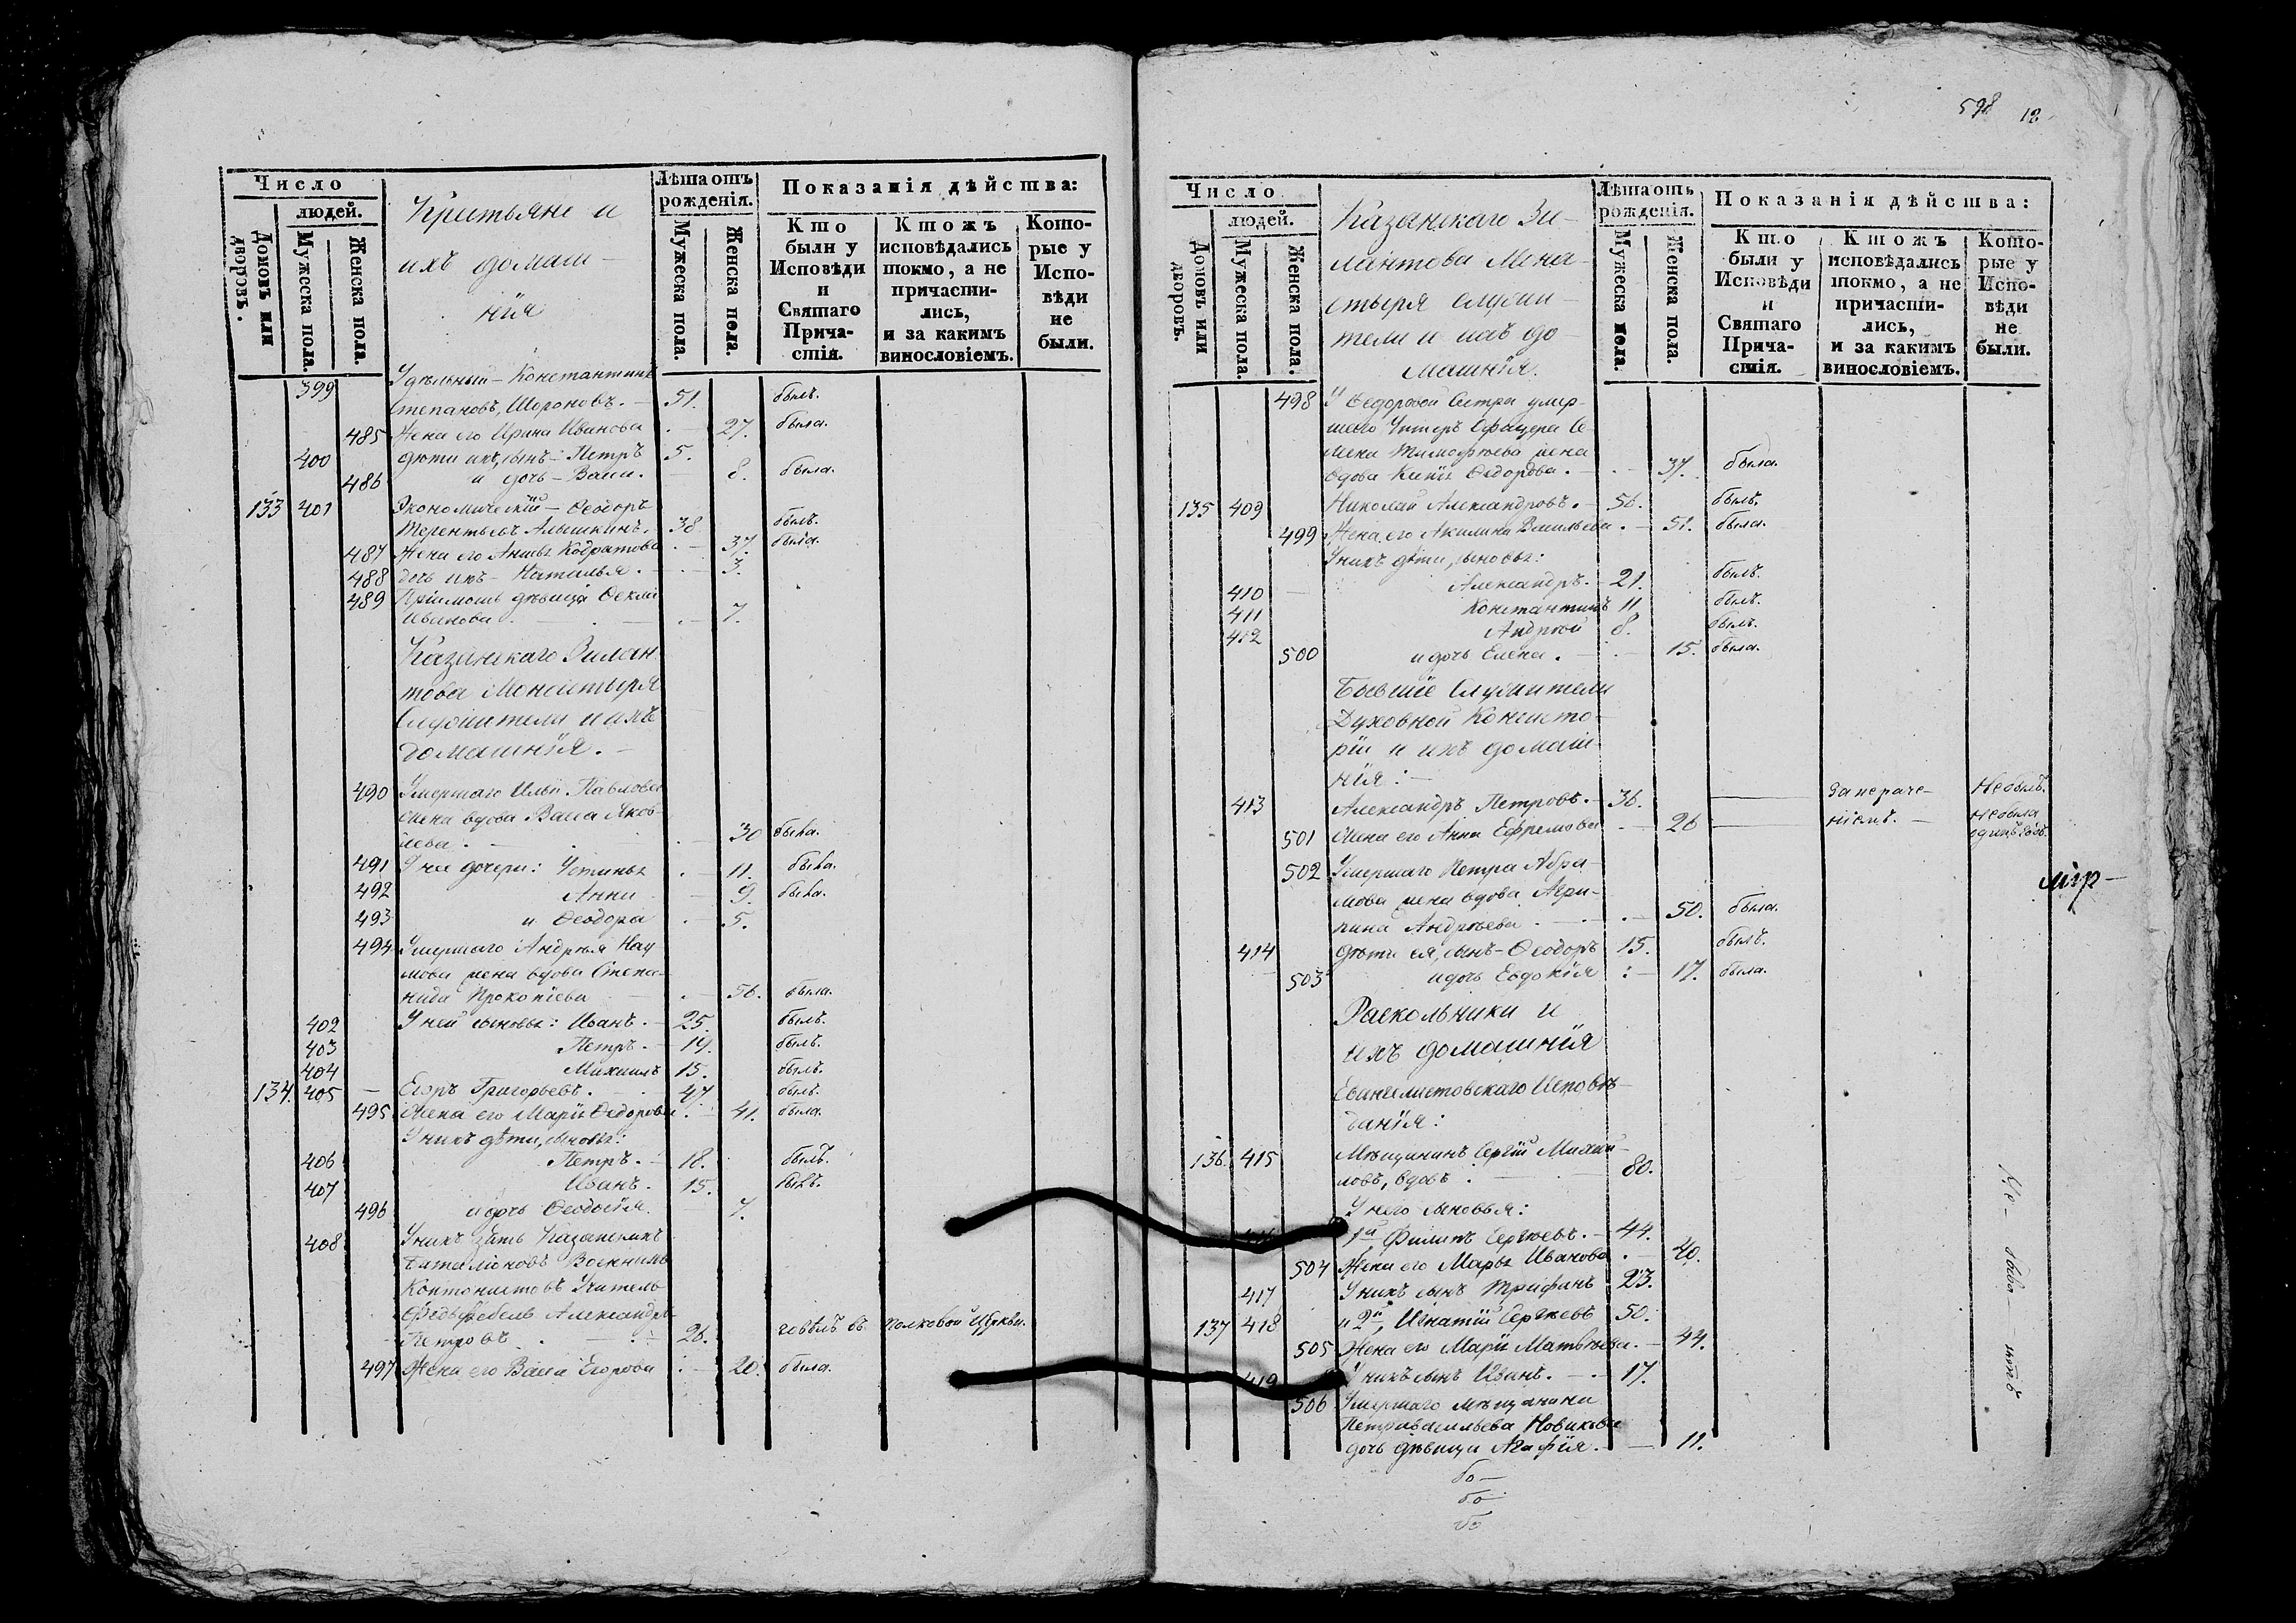 Число
людей.
Домовъ или дворовъ.
Мужеска пола.
Женска пола.
Крестьяне и
ихъ домаш-
нія
Лѣта отъ рожденія.
Мужеска пола.
Женска пола.
Показанія дѣйства:
Кто были у Исповѣди и Святаго Прича-стія.
Ктожъ исповѣдались токмо, а не причасти-лись, и за какимъ винословіемъ.
Кото-рые у Испо-вѣди не были.
399 Удѣльный – Константинъ
Степановъ, Шороновъ. – 51. былъ.
485 Жена его Ирина Иванова . – 27. была.
400 дѣти ихъ, сынъ – Петръ 5.
486 и дочь – Васса. – 8. была.
133 401 Экономическій – Ѳеодоръ
Терентьевъ Алышкинъ. – 38 былъ.
487 Жена его Кодратова . – 37. была
488 дочь ихъ – Наталья . – . – 3.
489 Пріимошъ дѣвица Ѳекла
Иванова . – . – 7.
Казанскаго Зилан-
това Монастыря
Служители и ихъ
домашнія . –
490 Умершаго Ильи Павлова
жена вдова Васса Яков-
лева . – 30 была.
491 У нее дочери: Устинья . – 11. была.
492 Анна – 9. была.
493 и Ѳеодора . – 5.
494 Умершаго Андрея Нау
мова жена вдова Степа-
нида Прокопіева . – 56. была.
402 У ней сыновья: Иванъ . – 25. былъ.
403 Петръ . – 19. былъ.
404 Михаилъ 15. былъ.
134. 405 – Егоръ Григорьевъ . – 47 былъ.
495 Жена его Марія Ѳедорова . – 41. была.
У нихъ дѣти, сыновья:
406 Петръ . – 18. былъ.
407 Иванъ . – 15. былъ.
496 и дочь Ѳеодосія. – 7.
408 У нихъ зять Казанскихъ
Баталіоновъ Военныхъ
Кантонистовъ Учитель
Фельдфебель Александръ
Петровъ . – 26. говѣлъ въ полковой Церкви.
497 Жена его Васса Егорова : – 20. была.
598 12
Число
людей.
Домовъ или дворовъ.
Мужеска пола.
Женска пола.
Казанскаго Зи-
лантова Мона-
стыря служи-
тели и ихъ до-
машнія.
Лѣта отъ рожденія.
Мужеска пола.
Женска пола.
Показанія дѣйства:
Кто были у Исповѣди и Святаго Прича-стія.
Ктожъ исповѣдались токмо, а не причасти-лись, и за какимъ винословіемъ.
Кото-рые у Испо-вѣди не были.
498 У Ѳедоровой Сестра умер-
шаго Унтеръ Офицера Се
мена Тимофѣева жена
вдова Ѳедорова . – . – 37. была.
135 409 Николай Александровъ . – 56. былъ.
499 Жена его Акилина Васильева . – 51. была.
У нихъ дѣти, сыновья:
410 Александръ . – 21. былъ.
411 Константинъ 11. былъ.
412 Андрей 8. былъ.
500 и дочь Елена . – . – 15. была.
Бывшіе Служители
Духовной Консисто-
ріи и ихъ домаш-
нія : –
413 Александръ Петровъ . – 36. За нераче- Небылъ.
501 Жена его Анна Ефремова . – 26 ніемъ . – Небыла
одинъ годъ.
502 Умершаго Петра Абра-
мова жена вдова Агри-
пина Андреева . – . – 50. была.
414 дѣти ея, сынъ – Ѳеодоръ 15. былъ.
503 и дочь Евдокія : – 17. была.
Раскольники и
ихъ домашнія
Евангелистовскаго Исповѣ-
данія:
136. 415 Мѣщанинъ Сергій Михай-
ловъ, вдовъ . – 80.
У него сыновья:
1й Филипъ Сергѣевъ . – 44.
504 Жена его Марья Иванова . – 40.
417 У нихъ сынъ Трифонъ 23.
137 418 и 2й, Игнатій Сергѣевъ 50.
505 Жена его Марія Матвѣева . – 44.
419 У нихъ сынъ Иванъ . – . – 17.
506 Умершаго мѣщанина
Петра Васильева Новикова
дочь дѣвица Агафія . – 11.